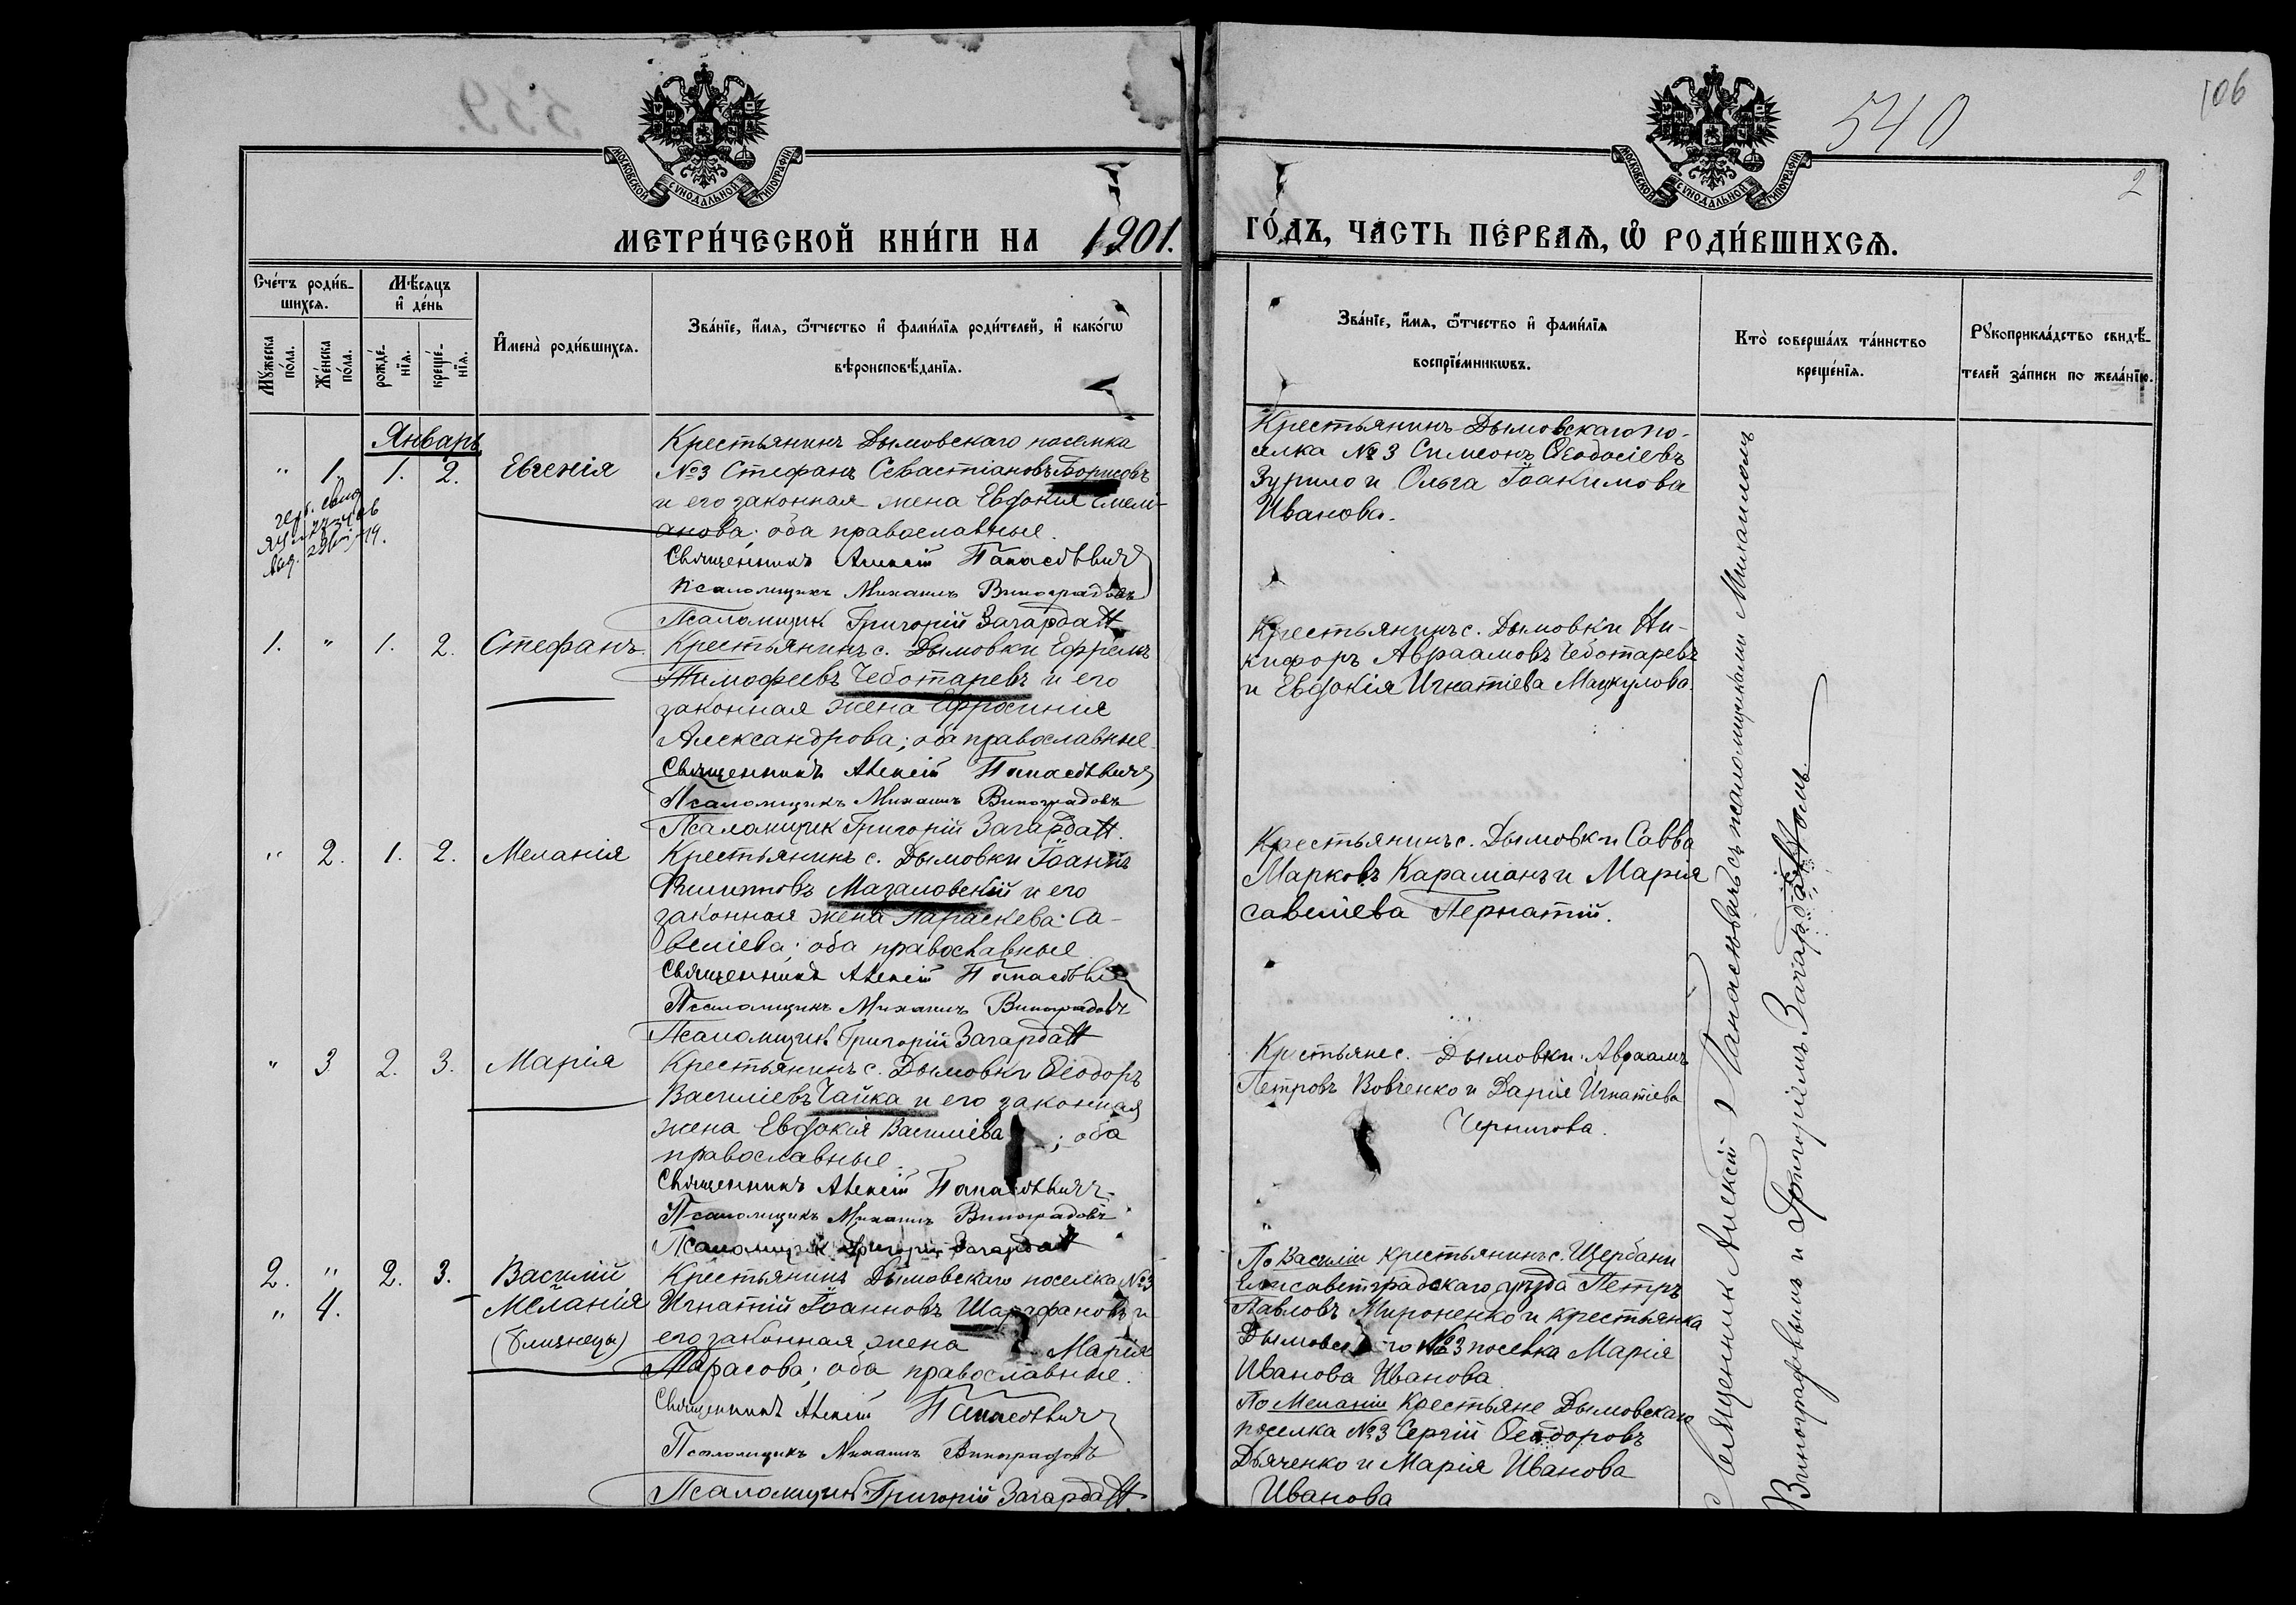 539.
540
106
2
МОСКОВСКОЙ СУНОДАЛЬНОЙ ТИПОГРАФІИ
МОСКОВСКОЙ СУНОДАЛЬНОЙ ТИПОГРАФІИ
МЕТРИ́ЧЕСКОЙ КНИ́ГИ НА 1901.
ГО́ДЪ, ЧАСТЬ ПЕ́РВАѦ, Ѡ҆ РОДИ́ВШИХСѦ.
Сче́тъ роди́в-
шихсѧ.
Мꙋ́жеска
по́ла.
Же́нска
по́ла.
Мѣ́сѧцъ
и҆ де́нь
рожде́-
нїѧ.
креще́-
нїѧ.
И҆мена̀ роди́вшихсѧ.
Зва́нїе, и҆́мѧ, ѿ́тчество и҆ фами́лїѧ роди́телей, и҆ како́гѡ
вѣроисповѣ́данїѧ.
Зва́нїе, и҆́мѧ, ѿ́тчество и҆ фами́лїѧ
воспрїе́мникѡвъ.
Кто̀ соверша́лъ та́инство
креще́нїѧ.
Рꙋкоприкла́дство свидѣ́-
телей за́писи по жела́нїю.
Январь
" 1. 1. 2. Евгенія
Крестьянинъ Дымовскаго поселка
№3 Стефанъ Севастіановъ Борисовъ
и его законная жена Евдокія Емелі-
анова; оба православные.
Священникъ Алексій Панасевичъ
Псаломщикъ Михаилъ Виноградовъ
Псаломщик Григорій Загардатт
Крестьянинъ Дымовскаго по-
селка №3 Симеонъ Ѳеодосіевъ
Зурило и Ольга Іоакимова
Иванова.
1. " 1. 2. Стефанъ.
Крестьянинъ с. Дымовки Ефремъ
Тимофеевъ Чеботаревъ и его
законная жена Ефросинія
Александрова; оба православные.
Священникъ Алексій Панасевичъ
Псаломщикъ Михаилъ Виноградовъ
Псаломщик Григорій Загардатт.
Крестьянинъ с. Дымовки Ни-
кифоръ Авраамовъ Чеботаревъ
и Евдокія Игнатіева
" 2. 1. 2. Меланія
Крестьянинъ с. Дымовки Іоаннъ
Филипповъ Мазаловскій и его
законная жена Параскева Са-
веліева; оба православные
Священникъ Алексій Панасевичъ
Псаломщикъ Михаилъ Виноградовъ
Псаломщик Григорій Загардатт
Крестьянинъ с. Дымовки Савва
Марковъ Караманъ и Марія
Савеліева Пернатій.
" 3 2. 3. Марія
Крестьянинъ с. Дымовки Ѳеодоръ
Василіевъ Чайка и его законная
жена Евдокія Василіева; оба
православные.
Священникъ Алексій Панасевичъ
Псаломщикъ Михаилъ Виноградовъ
Псаломщик Григорій Загардатт
Крестьяне с. Дымовки Авраамъ
Петровъ Вовченко и Дарія Игнатіева
Чернигова.
2. " 2. 3. Василій
" 4. Меланія
(близнецы)
Крестьянинъ Дымовскаго поселка №3
Игнатій Іоанновъ Шарафановъ и
его законная жена Марія
Тарасова; оба православные.
Священникъ Алексій Панасевичъ
Псаломщикъ Михаилъ Виноградовъ
Псаломщик Григорій Загардатт.
По Василіи крестьянинъ с. Щербани
Елисаветградскаго уѣзда Петръ
Павловъ Мироненко и крестьянка
Дымовскаго №3 поселка Марія
Иванова Иванова
По Меланіи крестьяне Дымовскаго
поселка №3 Сергій Ѳеодоровъ
Дьяченко и Марія Иванова
Иванова
Священник Алексій Панасевичъ съ псаломщиками Михаиломъ
Виноградовымъ и Григоріемъ Загардаттомъ